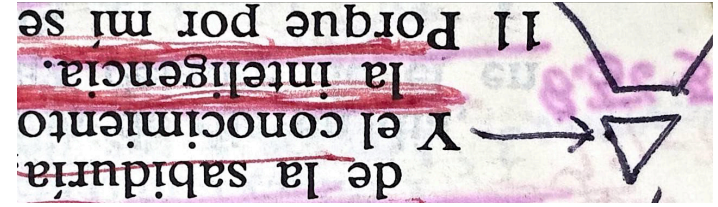 de la sabiduría,
Y el conocimiento
la inteligencia.
11 Porque por mí se